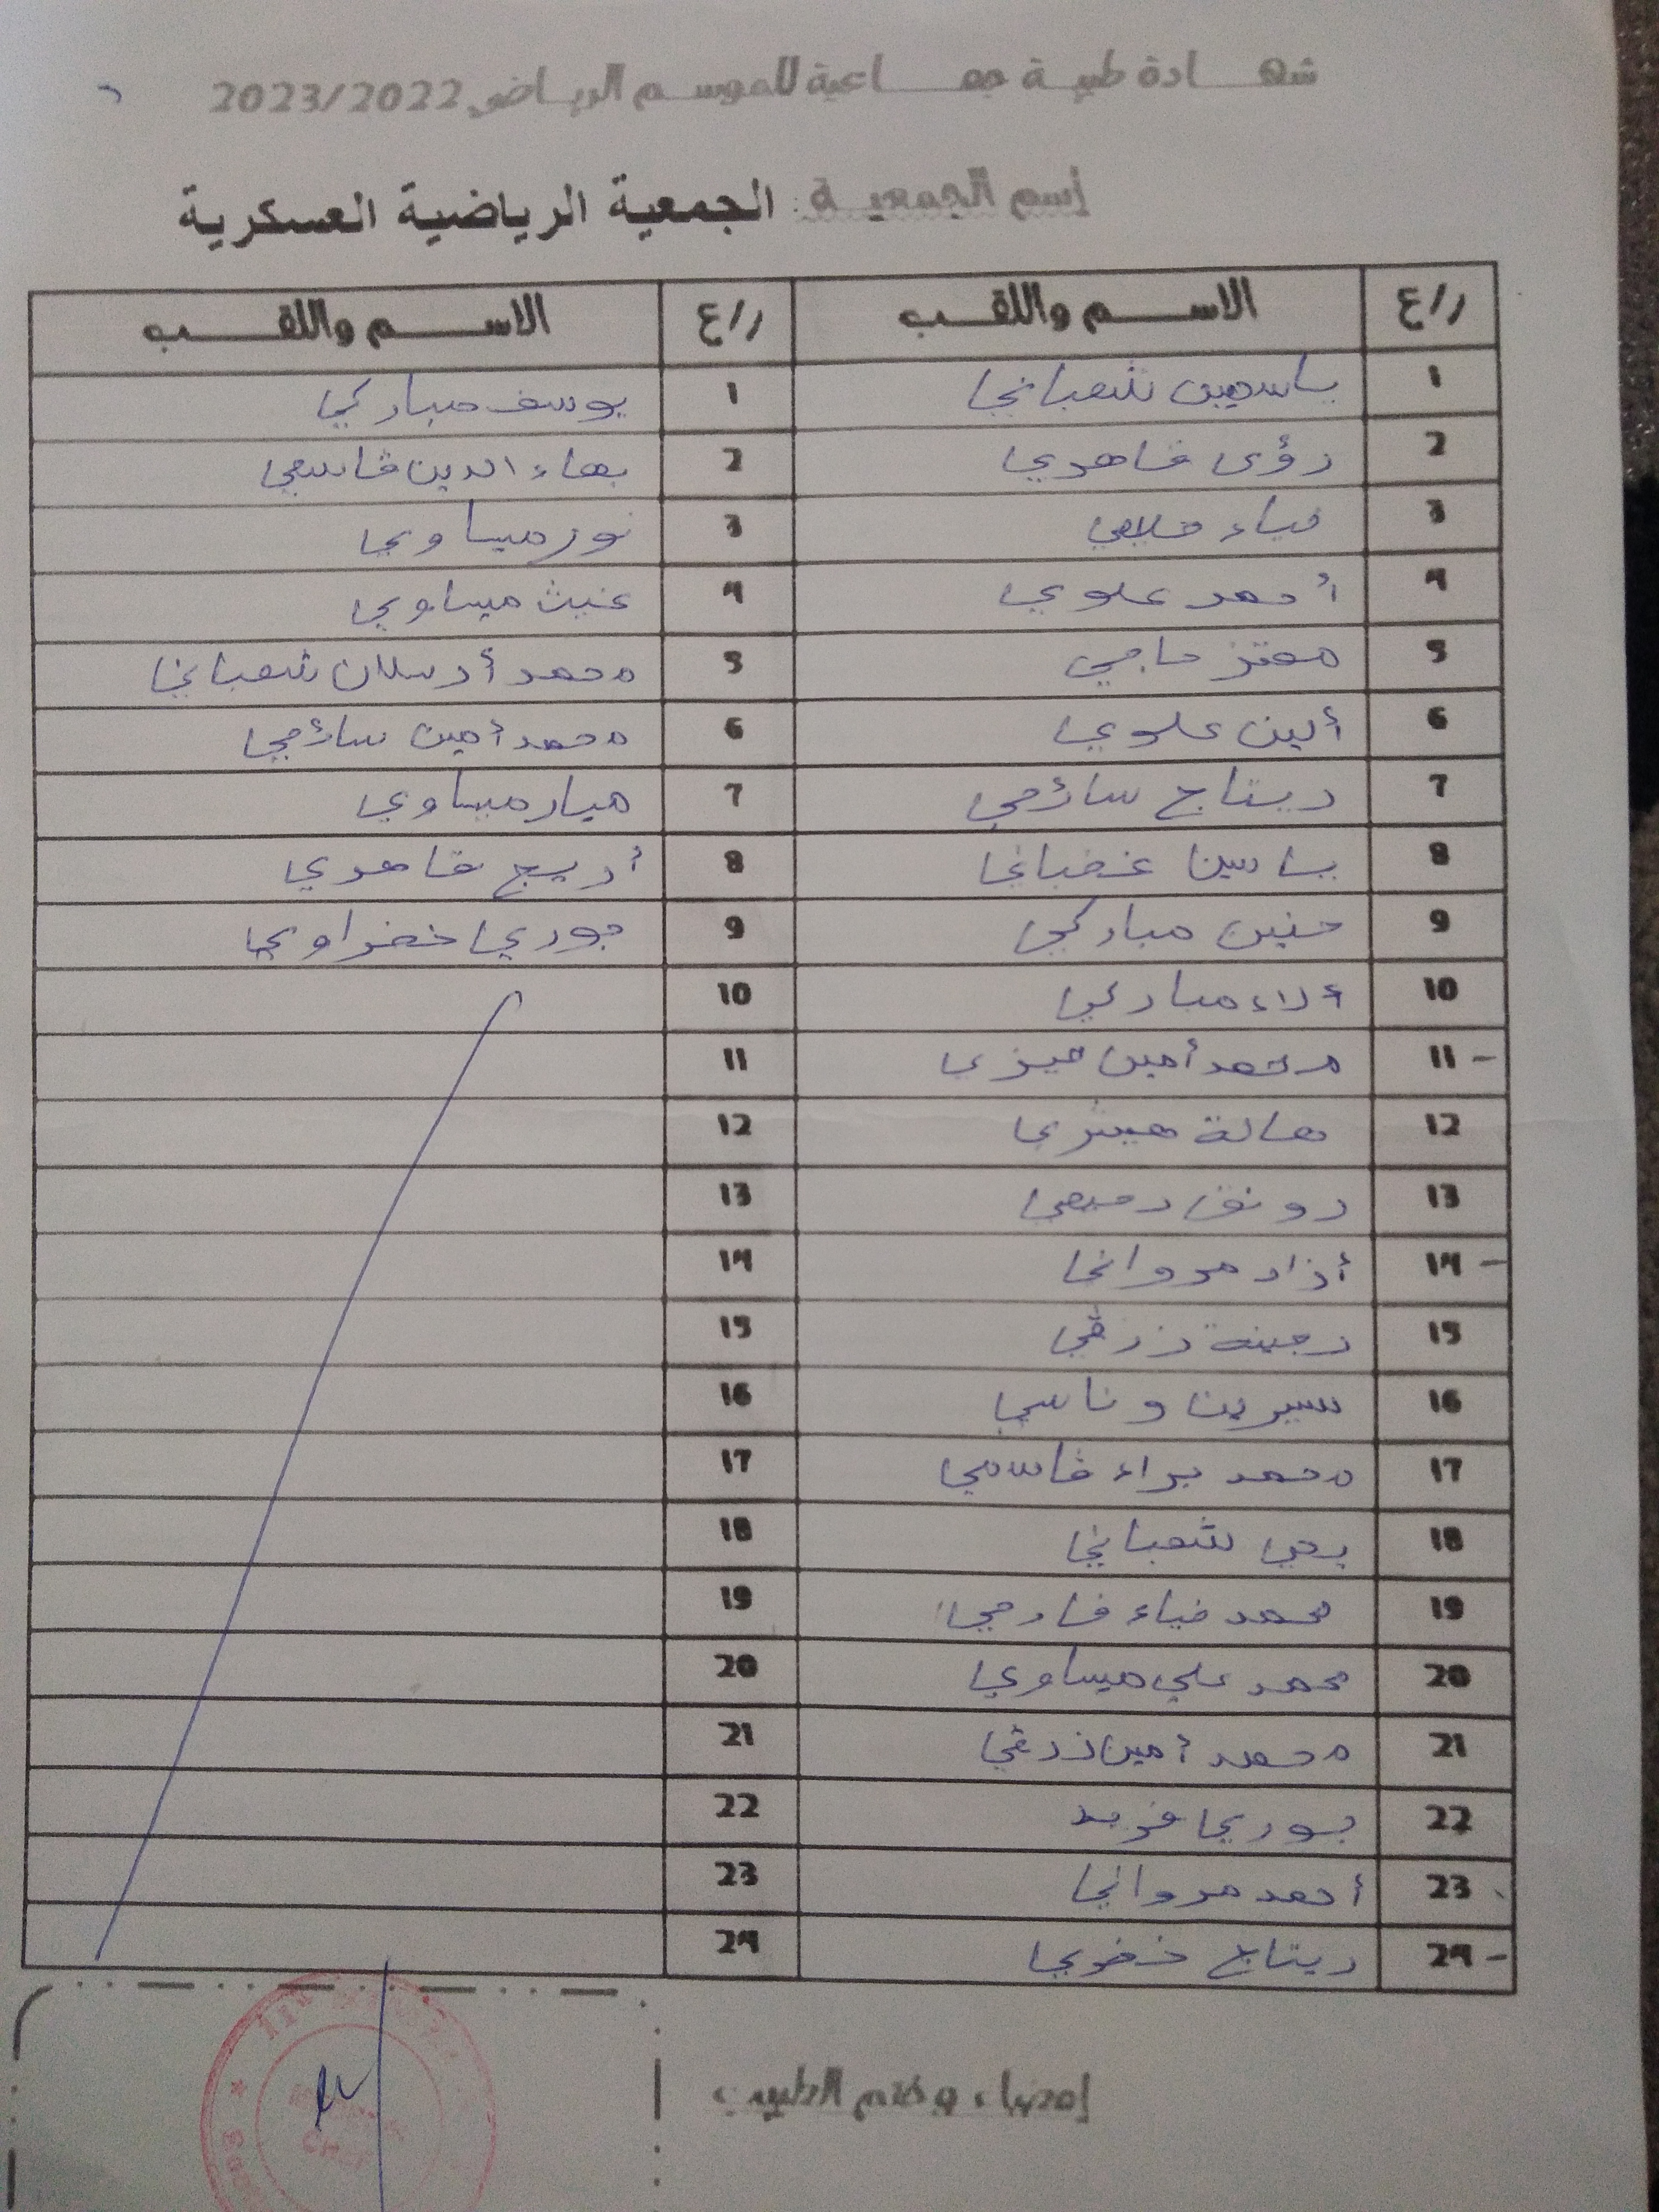 شهادة طبية جماعية للموسم الرياضي 2023/2022
إسم الجمعية : الجمعية الرياضية العسكرية
ر/ع الاسم واللقب ر/ع الاسم واللقب
1 ياسمين شعباني 1 يوسف مباركي
2 رؤى قاهري 2 بهاء الدين قاسمي
3 ضياء 3 نور ميساوي
4 أحمد علوي 4 غيث ميساوي
5 معتز حاجي 5 محمد أرسلان شعباني
6 ألين علوي 6 محمد أمين سائحي
7 ريتاج سائحي 7 ميار ميساوي
8 ياسين غضباني 8 أريج قاهري
9 حنين مباركي 9 جوري خضراوي
10 ألاء مباركي 10
11 محمد أمين ميزي 11
12 هالة 12
13 رونق 13
14 أزاد مرواني 14
15 زرقي 15
16 سيرين وناسي 16
17 محمد براء قاسمي 17
18 يحي شعباني 18
19 محمد ضياء فارحي 19
20 محمد علي ميساوي 20
21 محمد أمين زرقي 21
22 جوري فريد 22
23 أحمد مرواني 23
24 ريتاج خضري 24
إمضاء وختم الطبيب